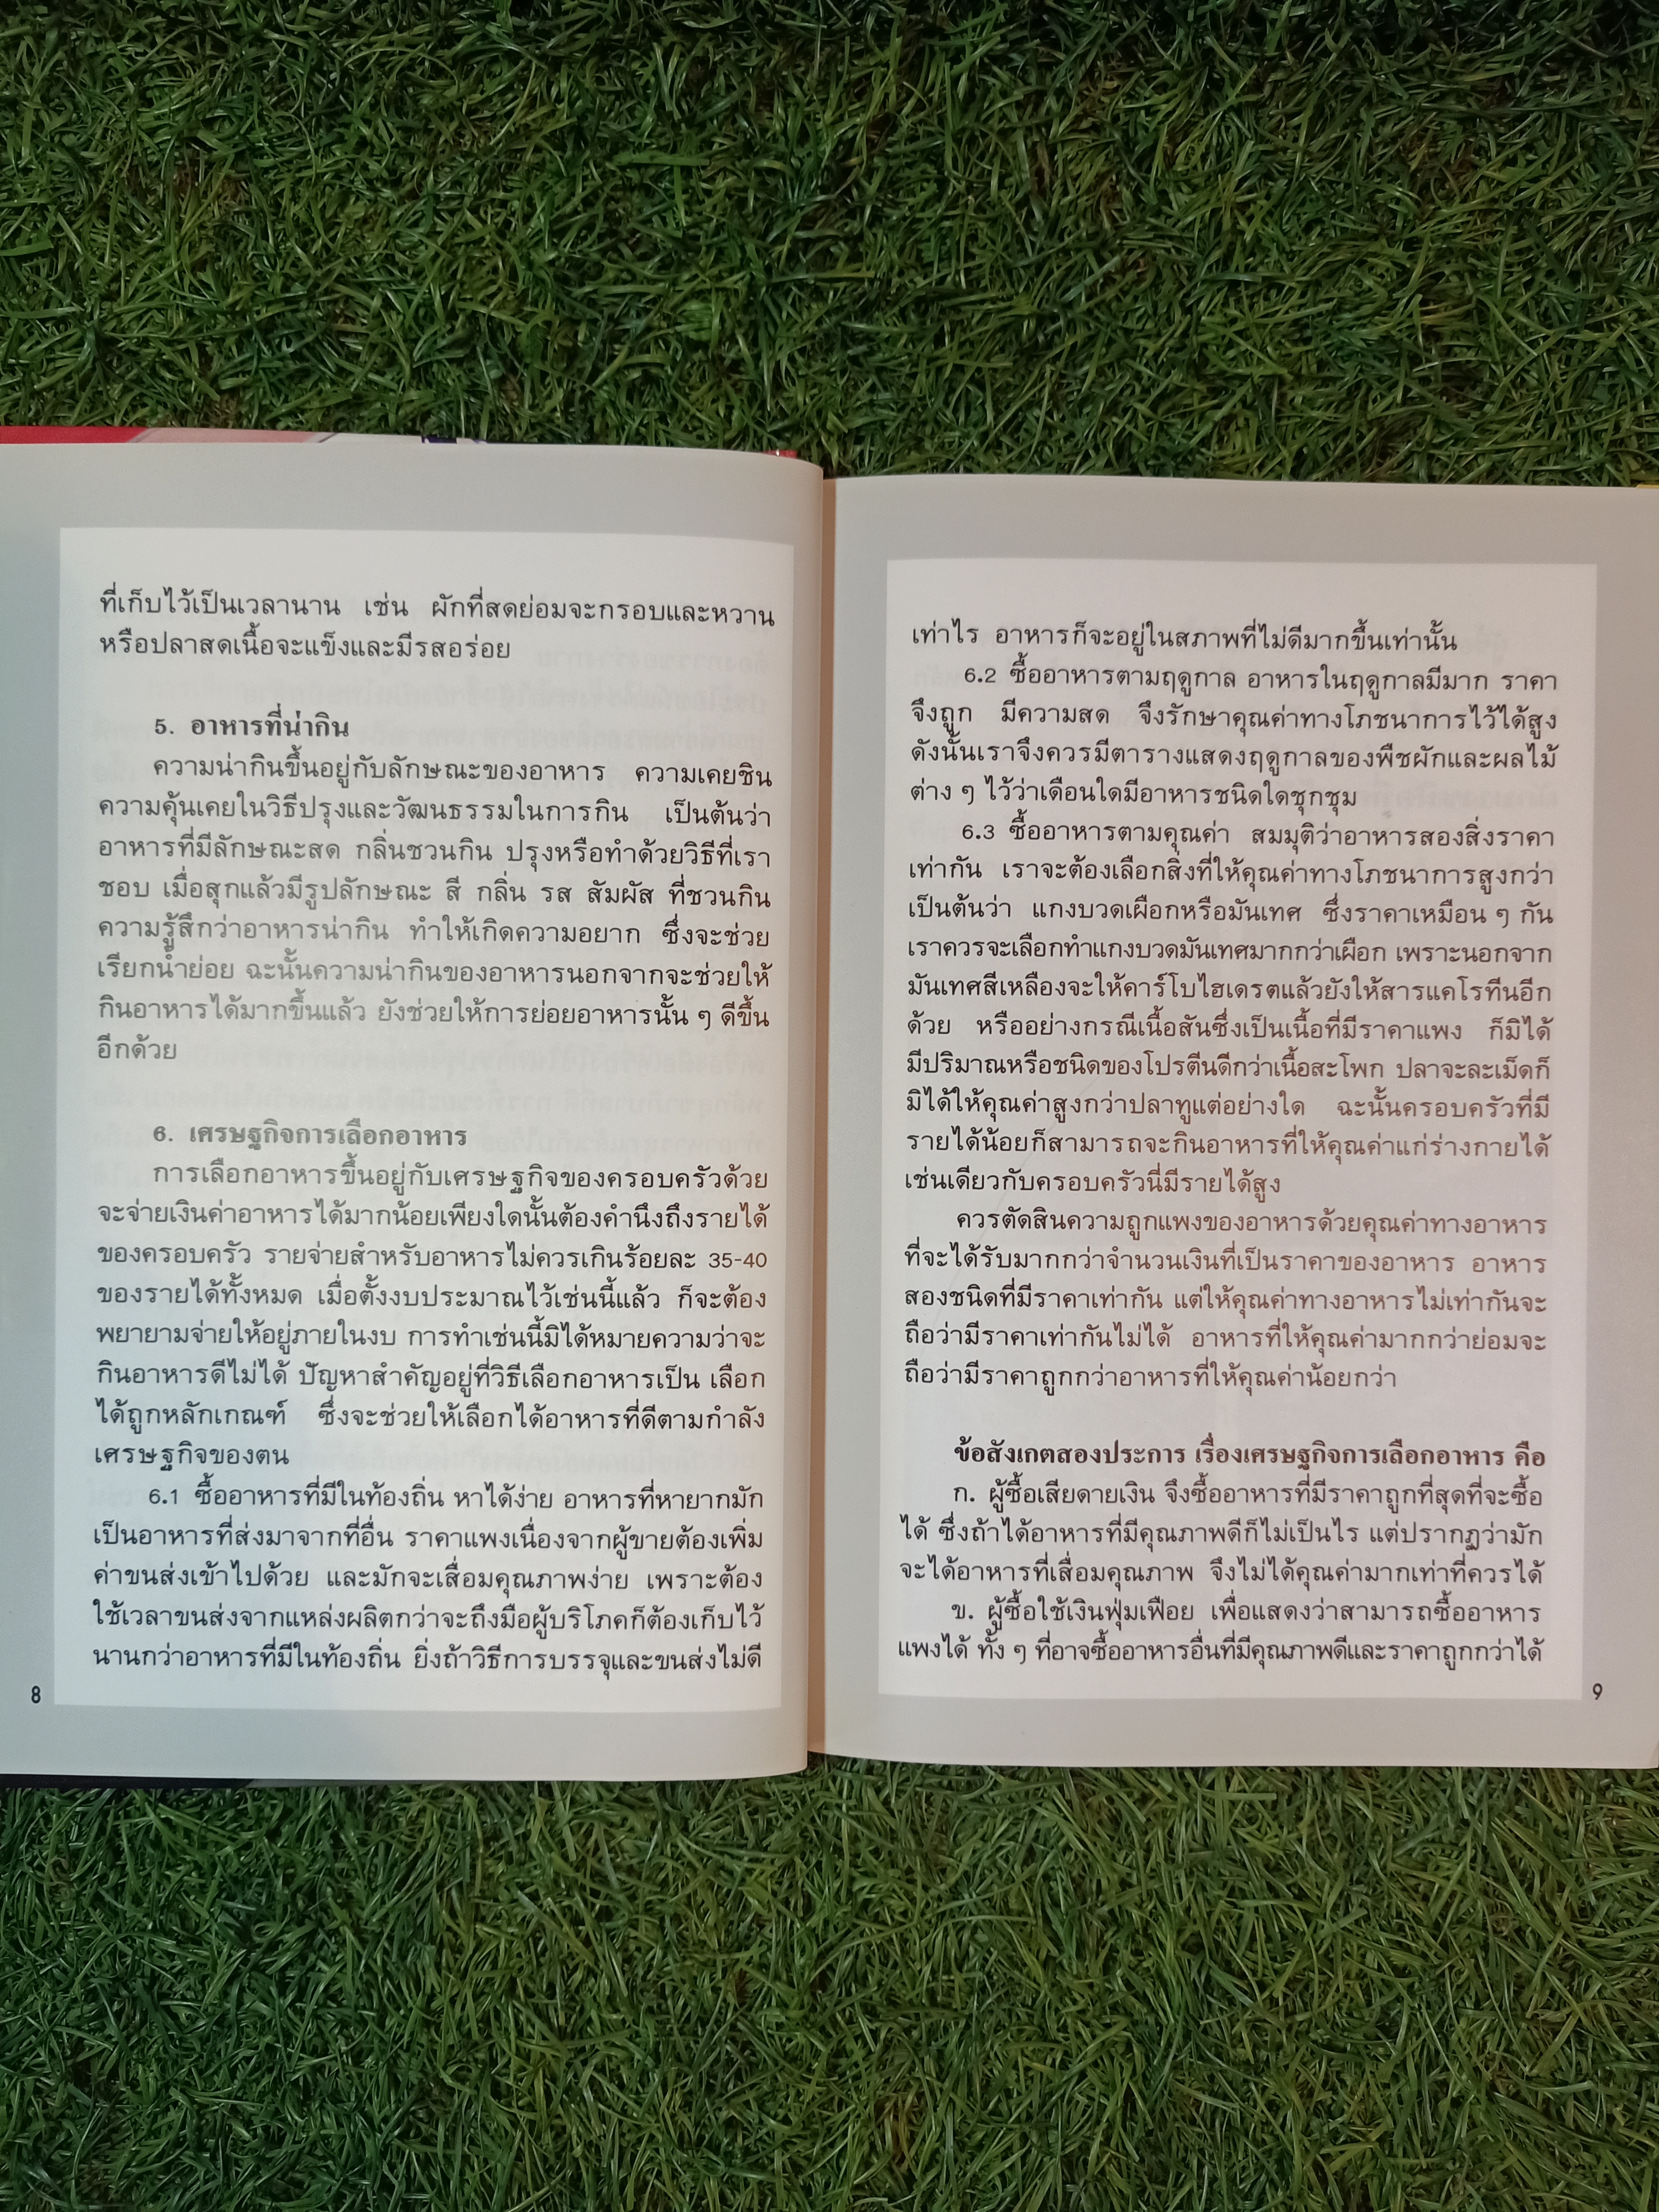 ที่เก็บไว้เป็นเวลานาน เช่น ผักที่สดย่อมจะกรอบและหวาน
หรือปลาสดเนื้อจะแข็งและมีรสอร่อย
5. อาหารที่น่ากิน
ความน่ากินขึ้นอยู่กับลักษณะของอาหาร ความเคยชิน
ความคุ้นเคยในวิธีปรุงและวัฒนธรรมในการกิน เป็นต้นว่า
อาหารที่มีลักษณะสด กลิ่นชวนกิน ปรุงหรือทำด้วยวิธีที่เรา
ชอบ เมื่อสุกแล้วมีรูปลักษณะ สี กลิ่น รส สัมผัส ที่ชวนกิน
ความรู้สึกว่าอาหารน่ากิน ทำให้เกิดความอยาก ซึ่งจะช่วย
เรียกน้ำย่อย ฉะนั้นความน่ากินของอาหารนอกจากจะช่วยให้
กินอาหารได้มากขึ้นแล้ว ยังช่วยให้การย่อยอาหารนั้น ๆ ดีขึ้น
อีกด้วย
6. เศรษฐกิจการเลือกอาหาร
การเลือกอาหารขึ้นอยู่กับเศรษฐกิจของครอบครัวด้วย
จะจ่ายเงินค่าอาหารได้มากน้อยเพียงใดนั้นต้องคำนึงถึงรายได้
ของครอบครัว รายจ่ายสำหรับอาหารไม่ควรเกินร้อยละ 35-40
ของรายได้ทั้งหมด เมื่อตั้งงบประมาณไว้เช่นนี้แล้ว ก็จะต้อง
พยายามจ่ายให้อยู่ภายในงบ การทำเช่นนี้มิได้หมายความว่าจะ
กินอาหารดีไม่ได้ ปัญหาสำคัญอยู่ที่วิธีเลือกอาหารเป็น เลือก
ได้ถูกหลักเกณฑ์ ซึ่งจะช่วยให้เลือกได้อาหารที่ดีตามกำลัง
เศรษฐกิจของตน
6.1 ซื้ออาหารที่มีในท้องถิ่น หาได้ง่าย อาหารที่หายากมัก
เป็นอาหารที่ส่งมาจากที่อื่น ราคาแพงเนื่องจากผู้ขายต้องเพิ่ม
ค่าขนส่งเข้าไปด้วย และมักจะเสื่อมคุณภาพง่าย เพราะต้อง
ใช้เวลาขนส่งจากแหล่งผลิตกว่าจะถึงมือผู้บริโภคก็ต้องเก็บไว้
นานกว่าอาหารที่มีในท้องถิ่น ยิ่งถ้าวิธีการบรรจุและขนส่งไม่ดี
8
เท่าไร อาหารก็จะอยู่ในสภาพที่ไม่ดีมากขึ้นเท่านั้น
6.2 ซื้ออาหารตามฤดูกาล อาหารในฤดูกาลมีมาก ราคา
จึงถูก มีความสด จึงรักษาคุณค่าทางโภชนาการไว้ได้สูง
ดังนั้นเราจึงควรมีตารางแสดงฤดูกาลของพืชผักและผลไม้
ต่าง ๆ ไว้ว่าเดือนใดมีอาหารชนิดใดชุกชุม
6.3 ซื้ออาหารตามคุณค่า สมมุติว่าอาหารสองสิ่งราคา
เท่ากัน เราจะต้องเลือกสิ่งที่ให้คุณค่าทางโภชนาการสูงกว่า
เป็นต้นว่า แกงบวดเผือกหรือมันเทศ ซึ่งราคาเหมือน ๆ กัน
เราควรจะเลือกทำแกงบวดมันเทศมากกว่าเผือก เพราะนอกจาก
มันเทศสีเหลืองจะให้คาร์โบไฮเดรตแล้วยังให้สารแคโรทีนอีก
ด้วย หรืออย่างกรณีเนื้อสันซึ่งเป็นเนื้อที่มีราคาแพง ก็มิได้
มีปริมาณหรือชนิดของโปรตีนดีกว่าเนื้อสะโพก ปลาจะละเม็ดก็
มิได้ให้คุณค่าสูงกว่าปลาทูแต่อย่างใด ฉะนั้นครอบครัวที่มี
รายได้น้อยก็สามารถจะกินอาหารที่ให้คุณค่าแก่ร่างกายได้
เช่นเดียวกับครอบครัวนี่มีรายได้สูง
ควรตัดสินความถูกแพงของอาหารด้วยคุณค่าทางอาหาร
ที่จะได้รับมากกว่าจำนวนเงินที่เป็นราคาของอาหาร อาหาร
สองชนิดที่มีราคาเท่ากัน แต่ให้คุณค่าทางอาหารไม่เท่ากันจะ
ถือว่ามีราคาเท่ากันไม่ได้ อาหารที่ให้คุณค่ามากกว่าย่อมจะ
ถือว่ามีราคาถูกกว่าอาหารที่ให้คุณค่าน้อยกว่า
ข้อสังเกตสองประการ เรื่องเศรษฐกิจการเลือกอาหาร คือ
ก. ผู้ซื้อเสียดายเงิน จึงซื้ออาหารที่มีราคาถูกที่สุดที่จะซื้อ
ได้ ซึ่งถ้าได้อาหารที่มีคุณภาพดีก็ไม่เป็นไร แต่ปรากฏว่ามัก
จะได้อาหารที่เสื่อมคุณภาพ จึงไม่ได้คุณค่ามากเท่าที่ควรได้
ข. ผู้ซื้อใช้เงินฟุ่มเฟือย เพื่อแสดงว่าสามารถซื้ออาหาร
แพงได้ ทั้ง ๆ ที่อาจซื้ออาหารอื่นที่มีคุณภาพดีและราคาถูกกว่าได้
9